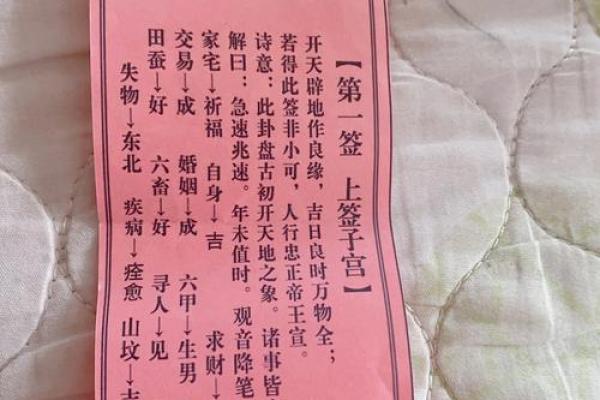 【第一签 上签子宫】
开天辟地作良缘，吉日良时万物全；
若得此签非小可，人行忠正帝王宣。
诗意：此卦盘古初开天地之象。诸事皆
解曰：急速兆速。年未值时。观音降笔
家宅→祈福 自身→吉 求财→
交易→成 婚姻→成 六甲→生男
田蚕→好 六畜→好 寻人→见
失物→东北 疾病→痊愈 山坟→吉